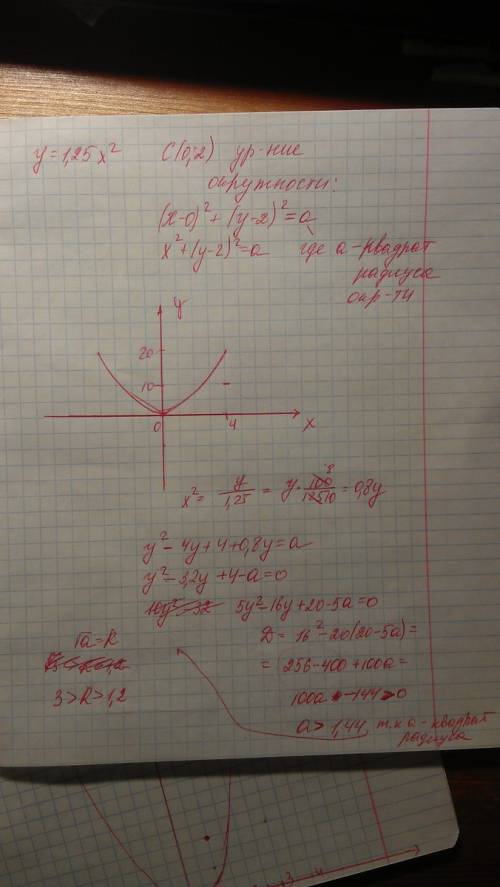 y = 1,25x² C(0;2) ур-ние
окружности:
(x-0)² + (y-2)² = a
x² + (y-2)² = a где a - квадрат
радиуса
окр-ти
y
20
10
0 4 x
x² = y/1,25 = y · 100/125 = 0,8y
y² - 4y + 4 + 0,8y = a
y² - 3,2y + 4 - a = 0
5y² - 16y + 20 - 5a = 0
√a = R D = 16² - 20(20 - 5a) =
= 256 - 400 + 100a =
3 > R > 1,2 100a - 144 > 0
a > 1,44, т.к a - квадрат
радиуса